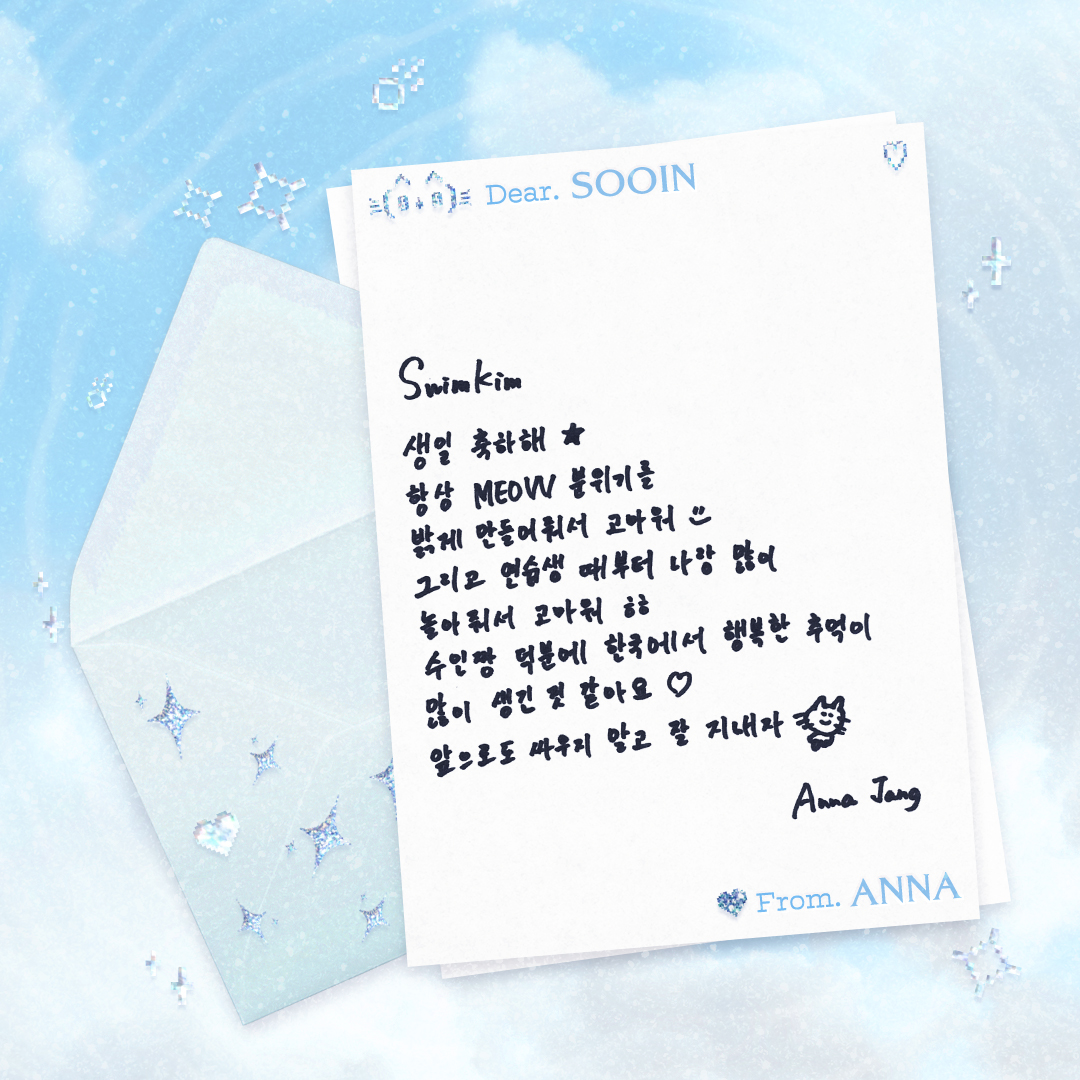 Dear. SOOIN
Swimkim
생일 축하해 ★
항상 MEOVV 분위기를
밝게 만들어줘서 고마워 :)
그리고 연습생 때부터 나랑 많이
놀아줘서 고마워 ㅎㅎ
수인짱 덕분에 한국에서 행복한 추억이
많이 생긴 것 같아요 ♡
앞으로도 싸우지 말고 잘 지내자
Anna Jang
From. ANNA